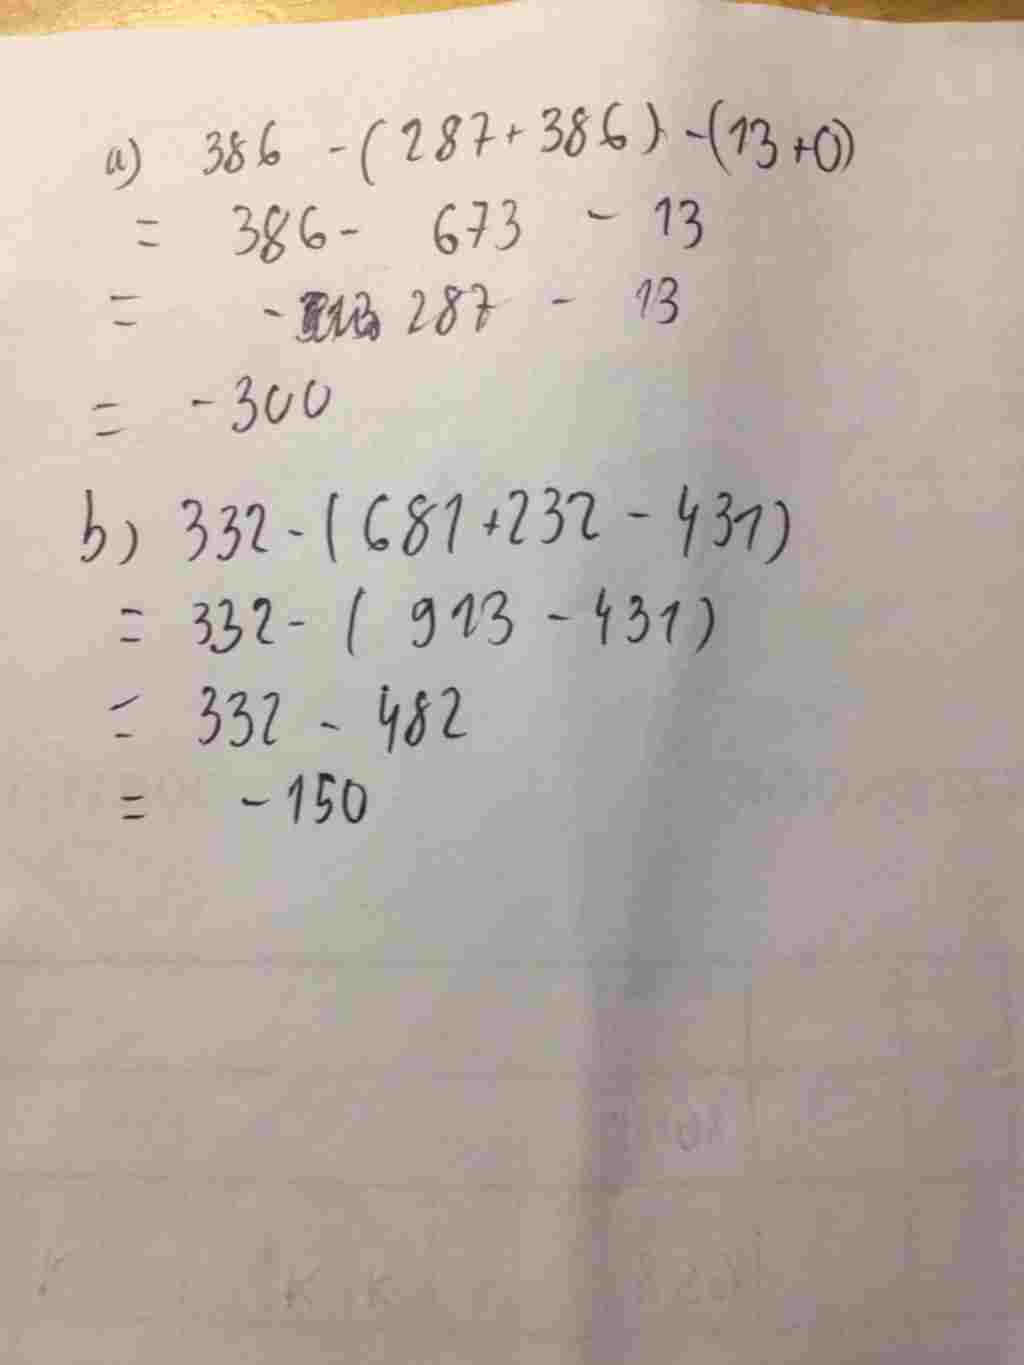 a) 386 - (287 + 386) - (13 + 0)
= 386 - 673 - 13
= - 287 - 13
= - 300
b) 332 - (681 + 232 - 431)
= 332 - (913 - 431)
= 332 - 482
= - 150